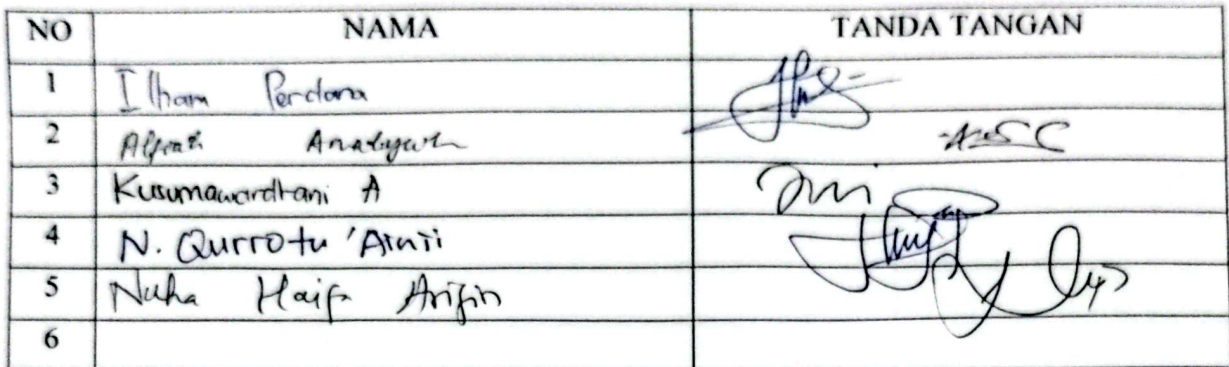 NO NAMA TANDA TANGAN
1 Ilham Perdana
2
3 Kusumawardhani A
4 N. Qurrotu 'Aini
5 Nuha Haifa Arifin
6